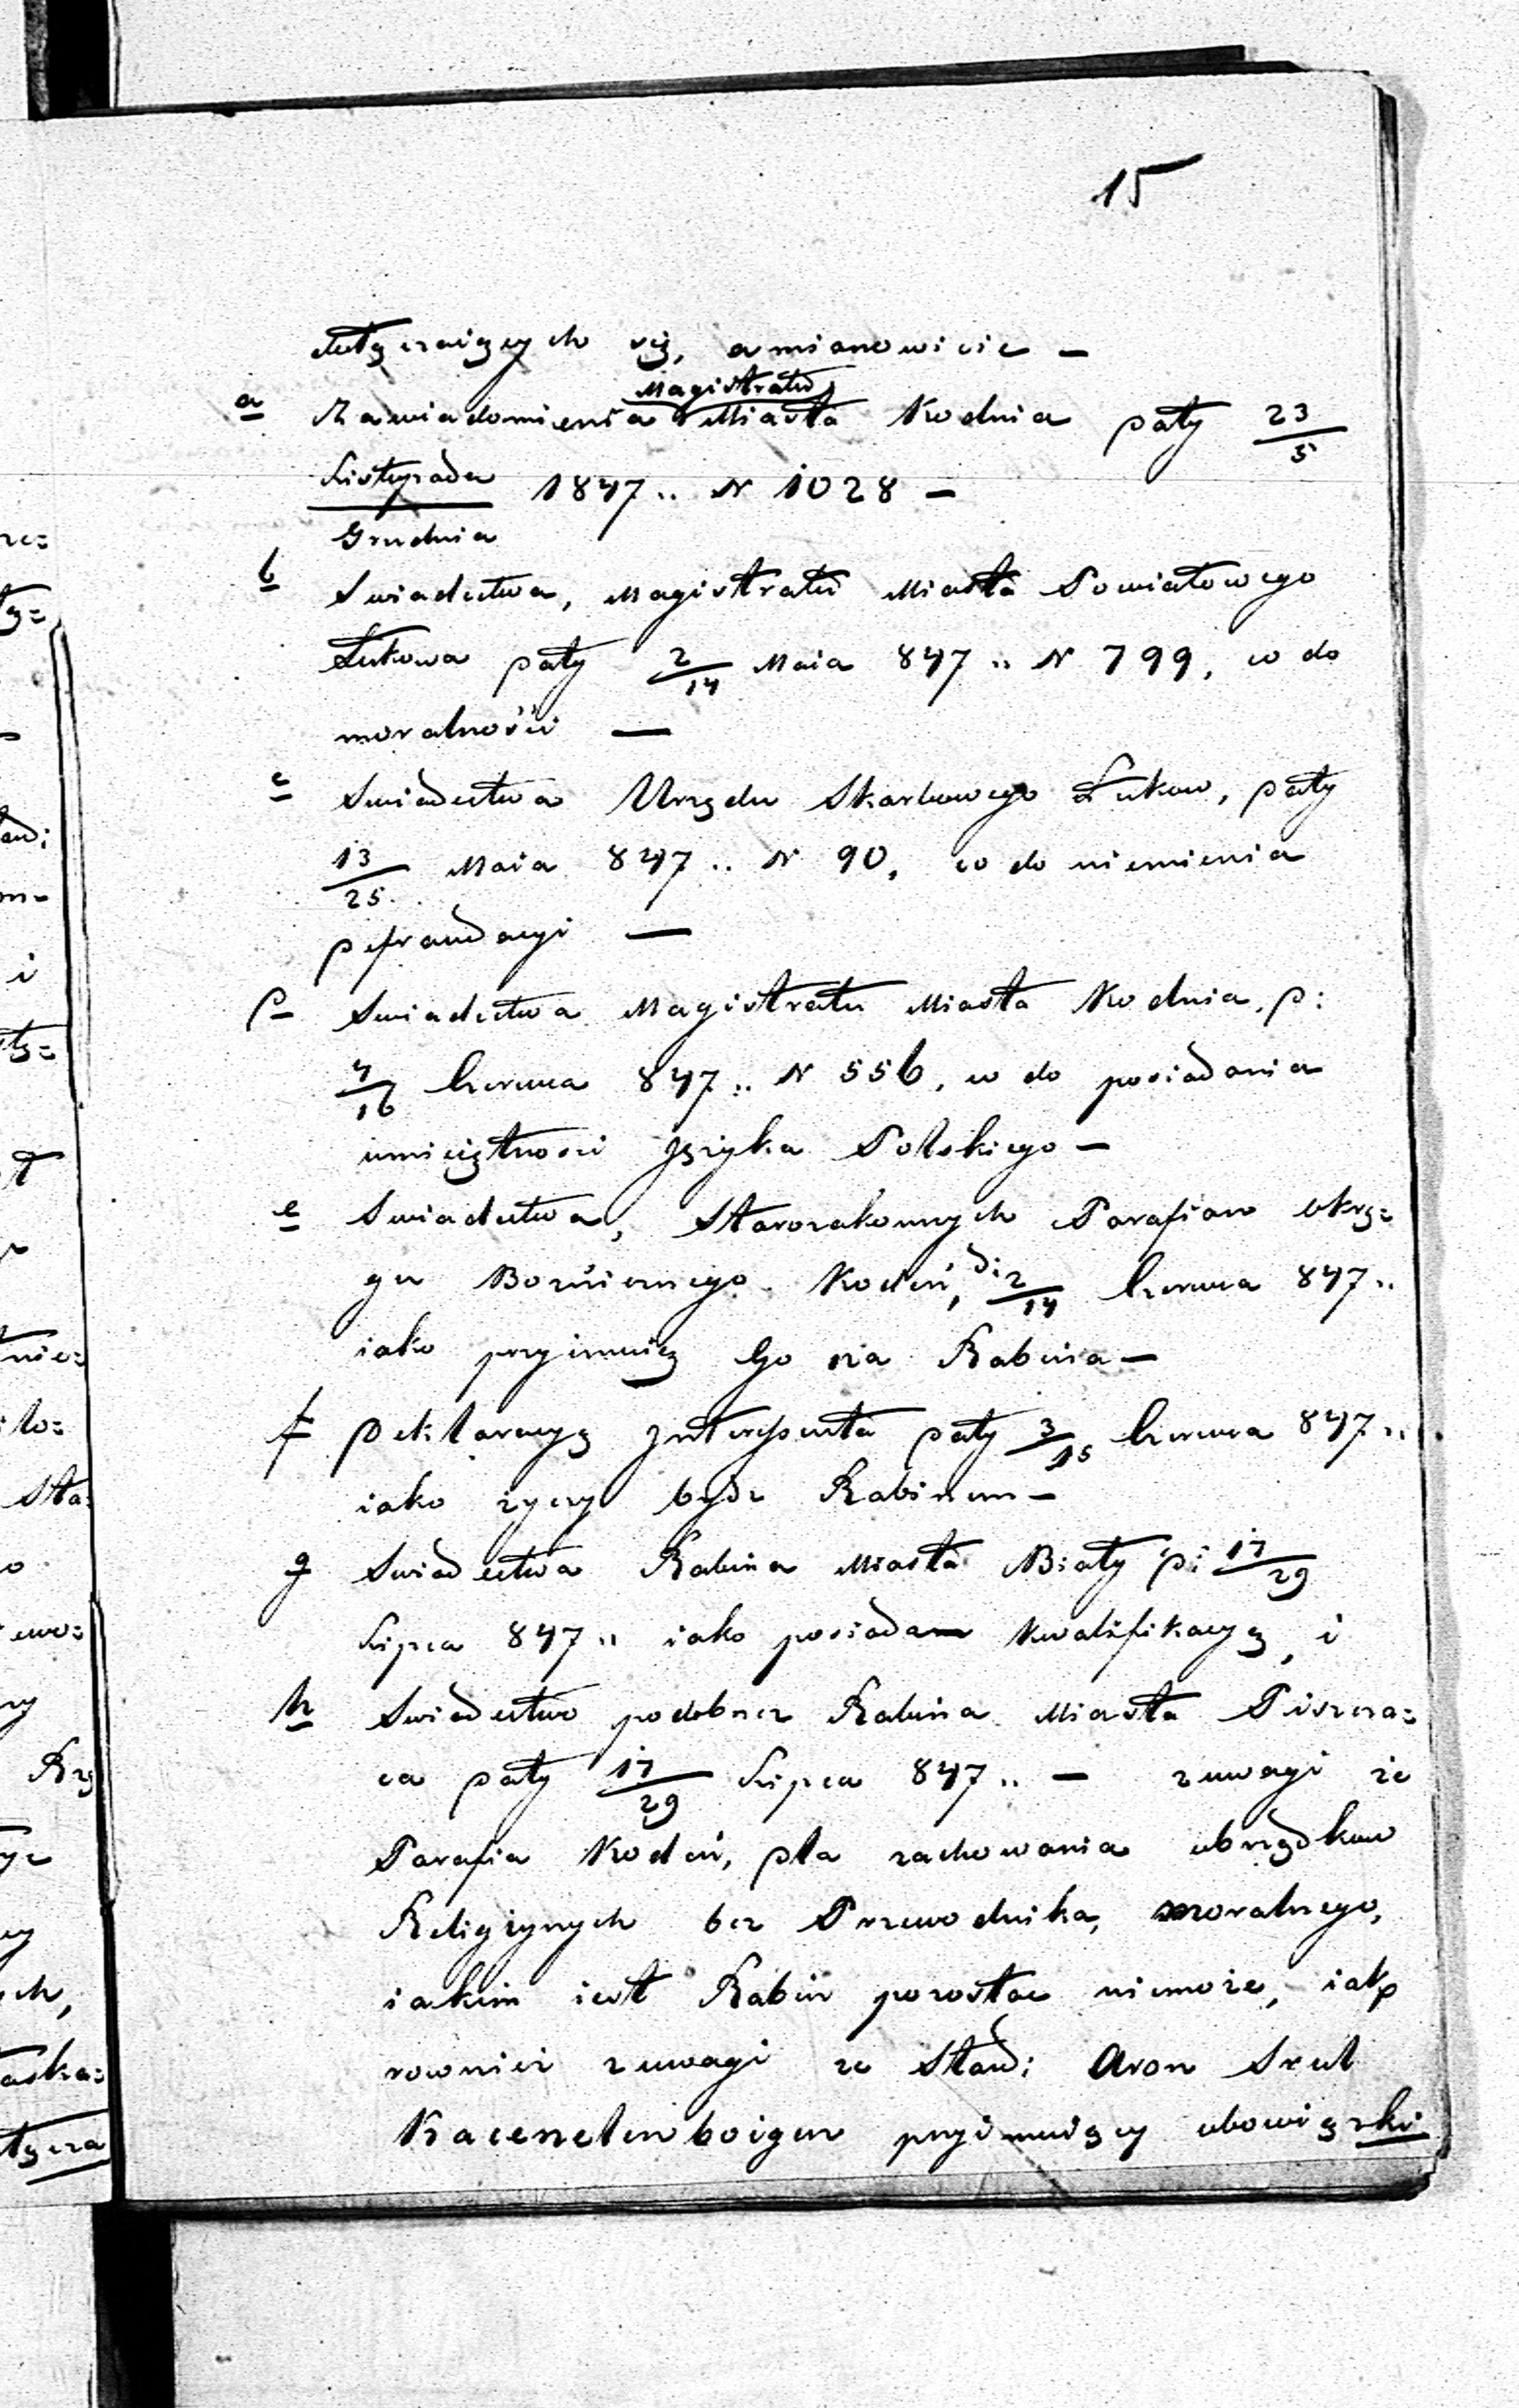 15
dołączaiących się, amianowicie –
a Zawiadomienia Magistratu Miasta Kodnia Daty 23/5
Listopada/Grudnia 1847.. N 1028 –
b Swiadectwa, Magistratu Miasta Powiatowego
Łukowa Daty 2/14 Maia 847.. N 799, co do
moralności —
c Swiadectwa Urzędu Skarbowego Łukow, Daty
13/25 Maia 847.. N 90, co do niemienia
Defraudacyi —
D Swiadectwa Magistratu Miasta Kodnia, D:
4/16 Czerwca 847.. N 556, co do posiadania
umieiętnosci Języka Polskiego –
e Swiadectwa, Starozakonnych Parafian Okrę=
gu Bożnicznego Kodeń, D: 2/14 Czerwca 847..
iako przyimuią Go za Rabina –
f Deklaracyą Interesenta Daty 3/15 Czerwca 847..
iako życzy bydz Rabinem –
g Swiadectwa Rabina Miasta Biały D: 17/29
Lipca 847.. iako posiada Kwalifikacyą, i
h Swiadectwo podobnez Rabina Miasta Piszcza=
ca Daty 17/29 Lipca 847.. – zuwagi że
Parafia Kodeń, Dla zachowania obrządkow
Religiynych bez Przewodnika, moralnego,
iakim iest Rabin pozostac niemoże, iak
rownież zuwagi ze Staw: Aron Srul
Kacenelenboigen przyimuiący obowiązki